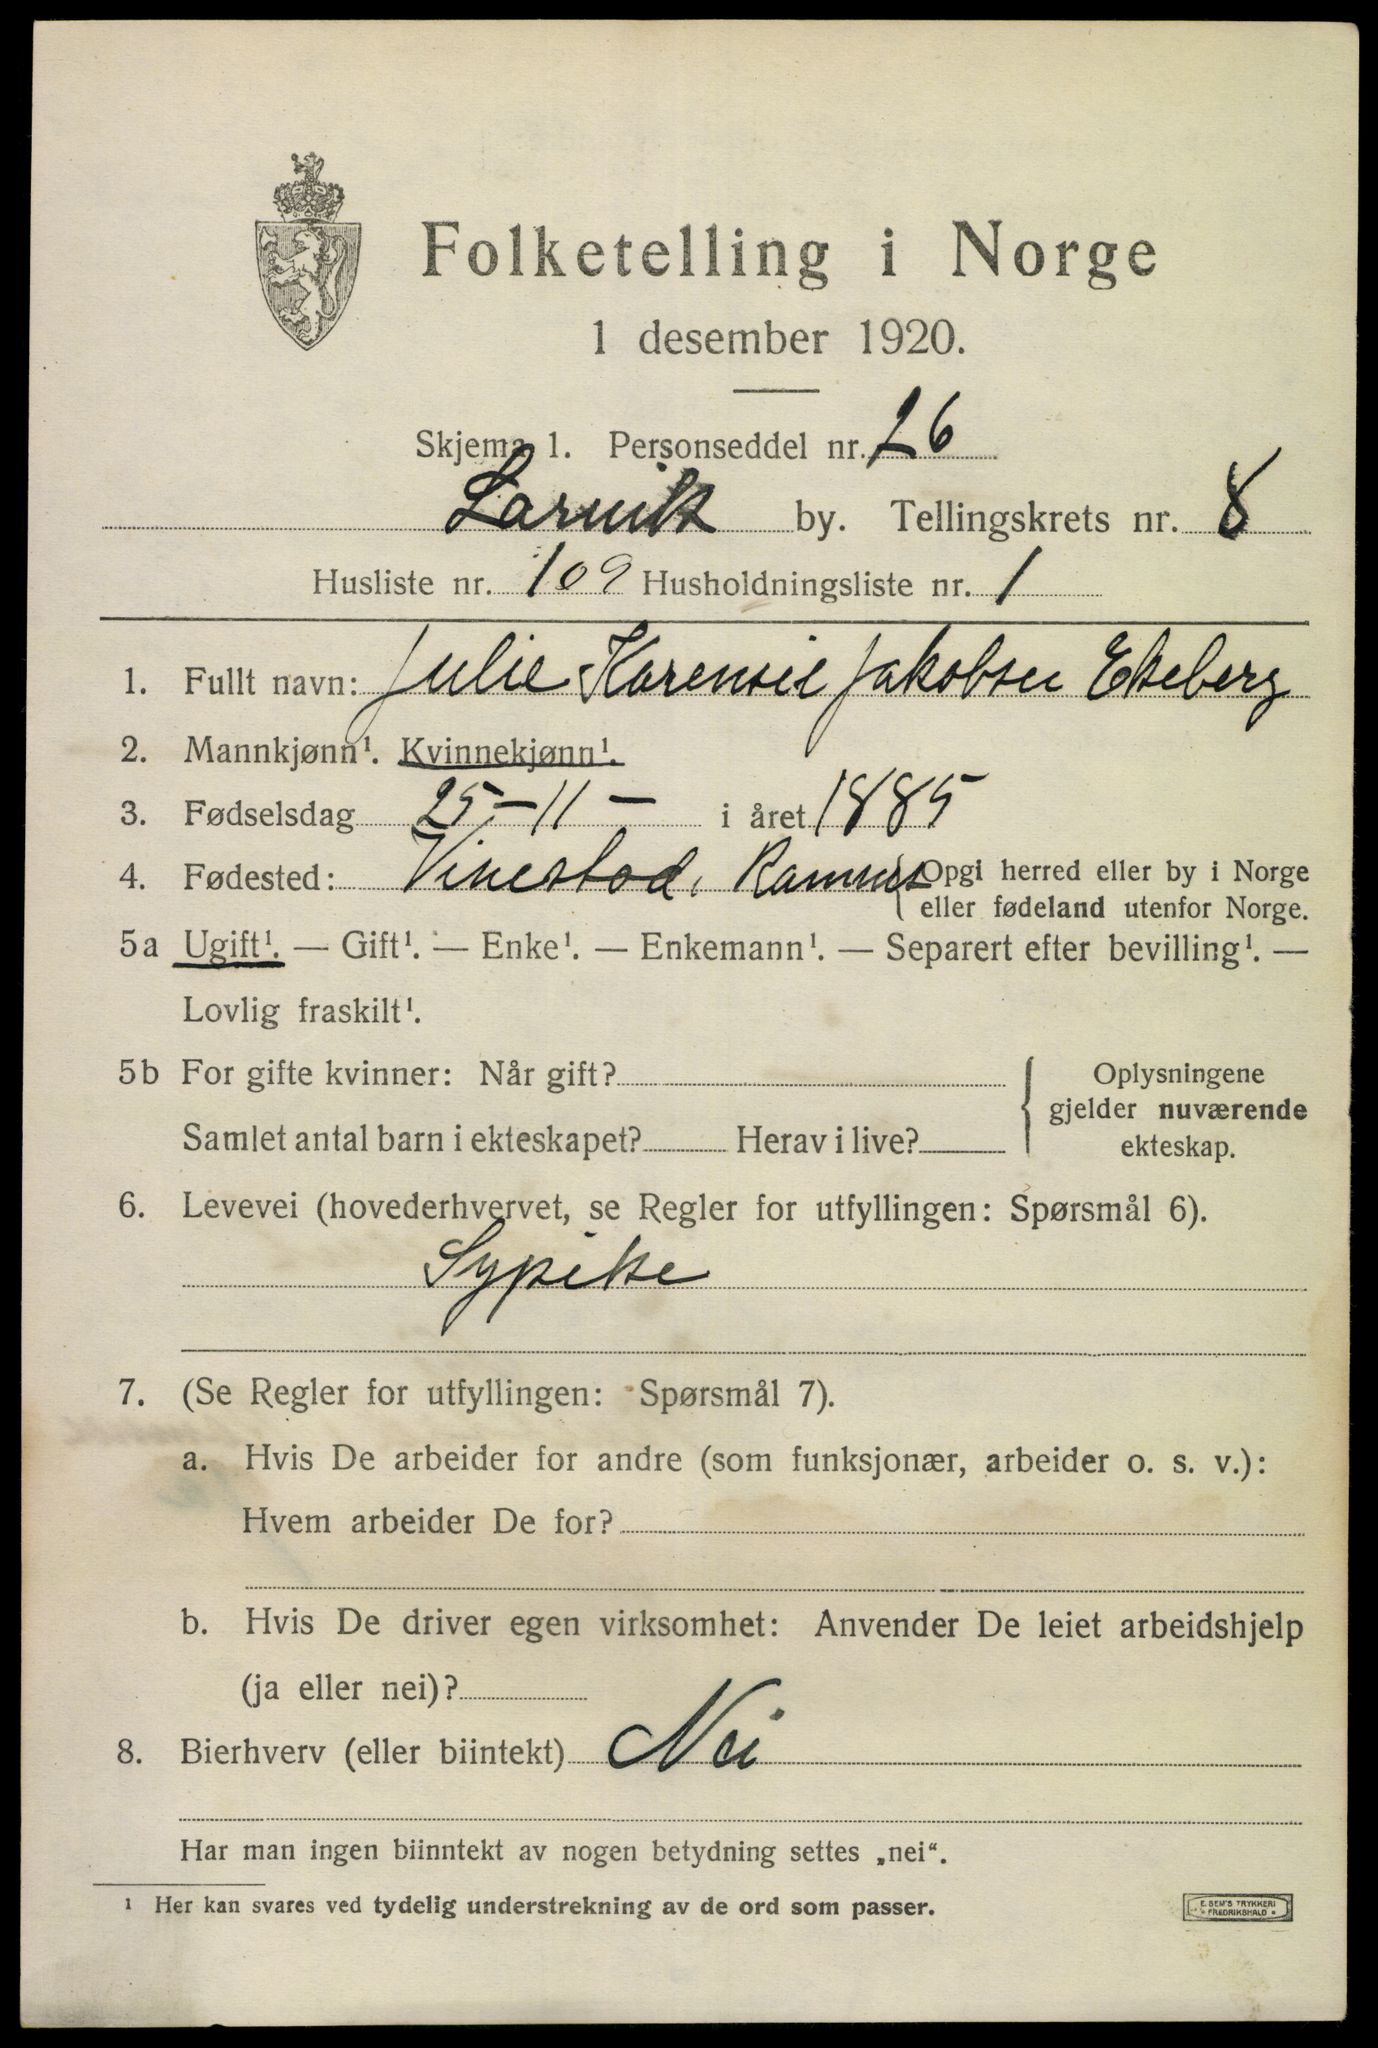 Folketelling i Norge
1 desember 1920.
Skjema 1. Personseddel nr. 26
Larvik by. Tellingskrets nr. 8
Husliste nr. 109 Husholdningsliste nr. 1
1. Fullt navn: Julie Karensie Jakobsen Ekeberg
2. Mannkjønn¹. Kvinnekjønn¹.
3. Fødselsdag 25-11- i året 1885
4. Fødested: Vinestad, Ramnes Opgi herred eller by i Norge
eller fødeland utenfor Norge.
5a Ugift¹. — Gift¹. — Enke¹. — Enkemann¹. — Separert efter bevilling¹. —
Lovlig fraskilt¹.
5b For gifte kvinner: Når gift? Oplysningene
gjelder nuværende
Samlet antal barn i ekteskapet? Herav i live? ekteskap.
6. Levevei (hovederhvervet, se Regler for utfyllingen: Spørsmål 6).
Sypike
7. (Se Regler for utfyllingen: Spørsmål 7).
a. Hvis De arbeider for andre (som funksjonær, arbeider o. s. v.):
Hvem arbeider De for?
b. Hvis De driver egen virksomhet: Anvender De leiet arbeidshjelp
(ja eller nei)?
8. Bierhverv (eller biintekt) Nei
Har man ingen biinntekt av nogen betydning settes „nei“.
¹ Her kan svares ved tydelig understrekning av de ord som passer.
E. SEM'S TRYKKERI
FREDRIKSHALD